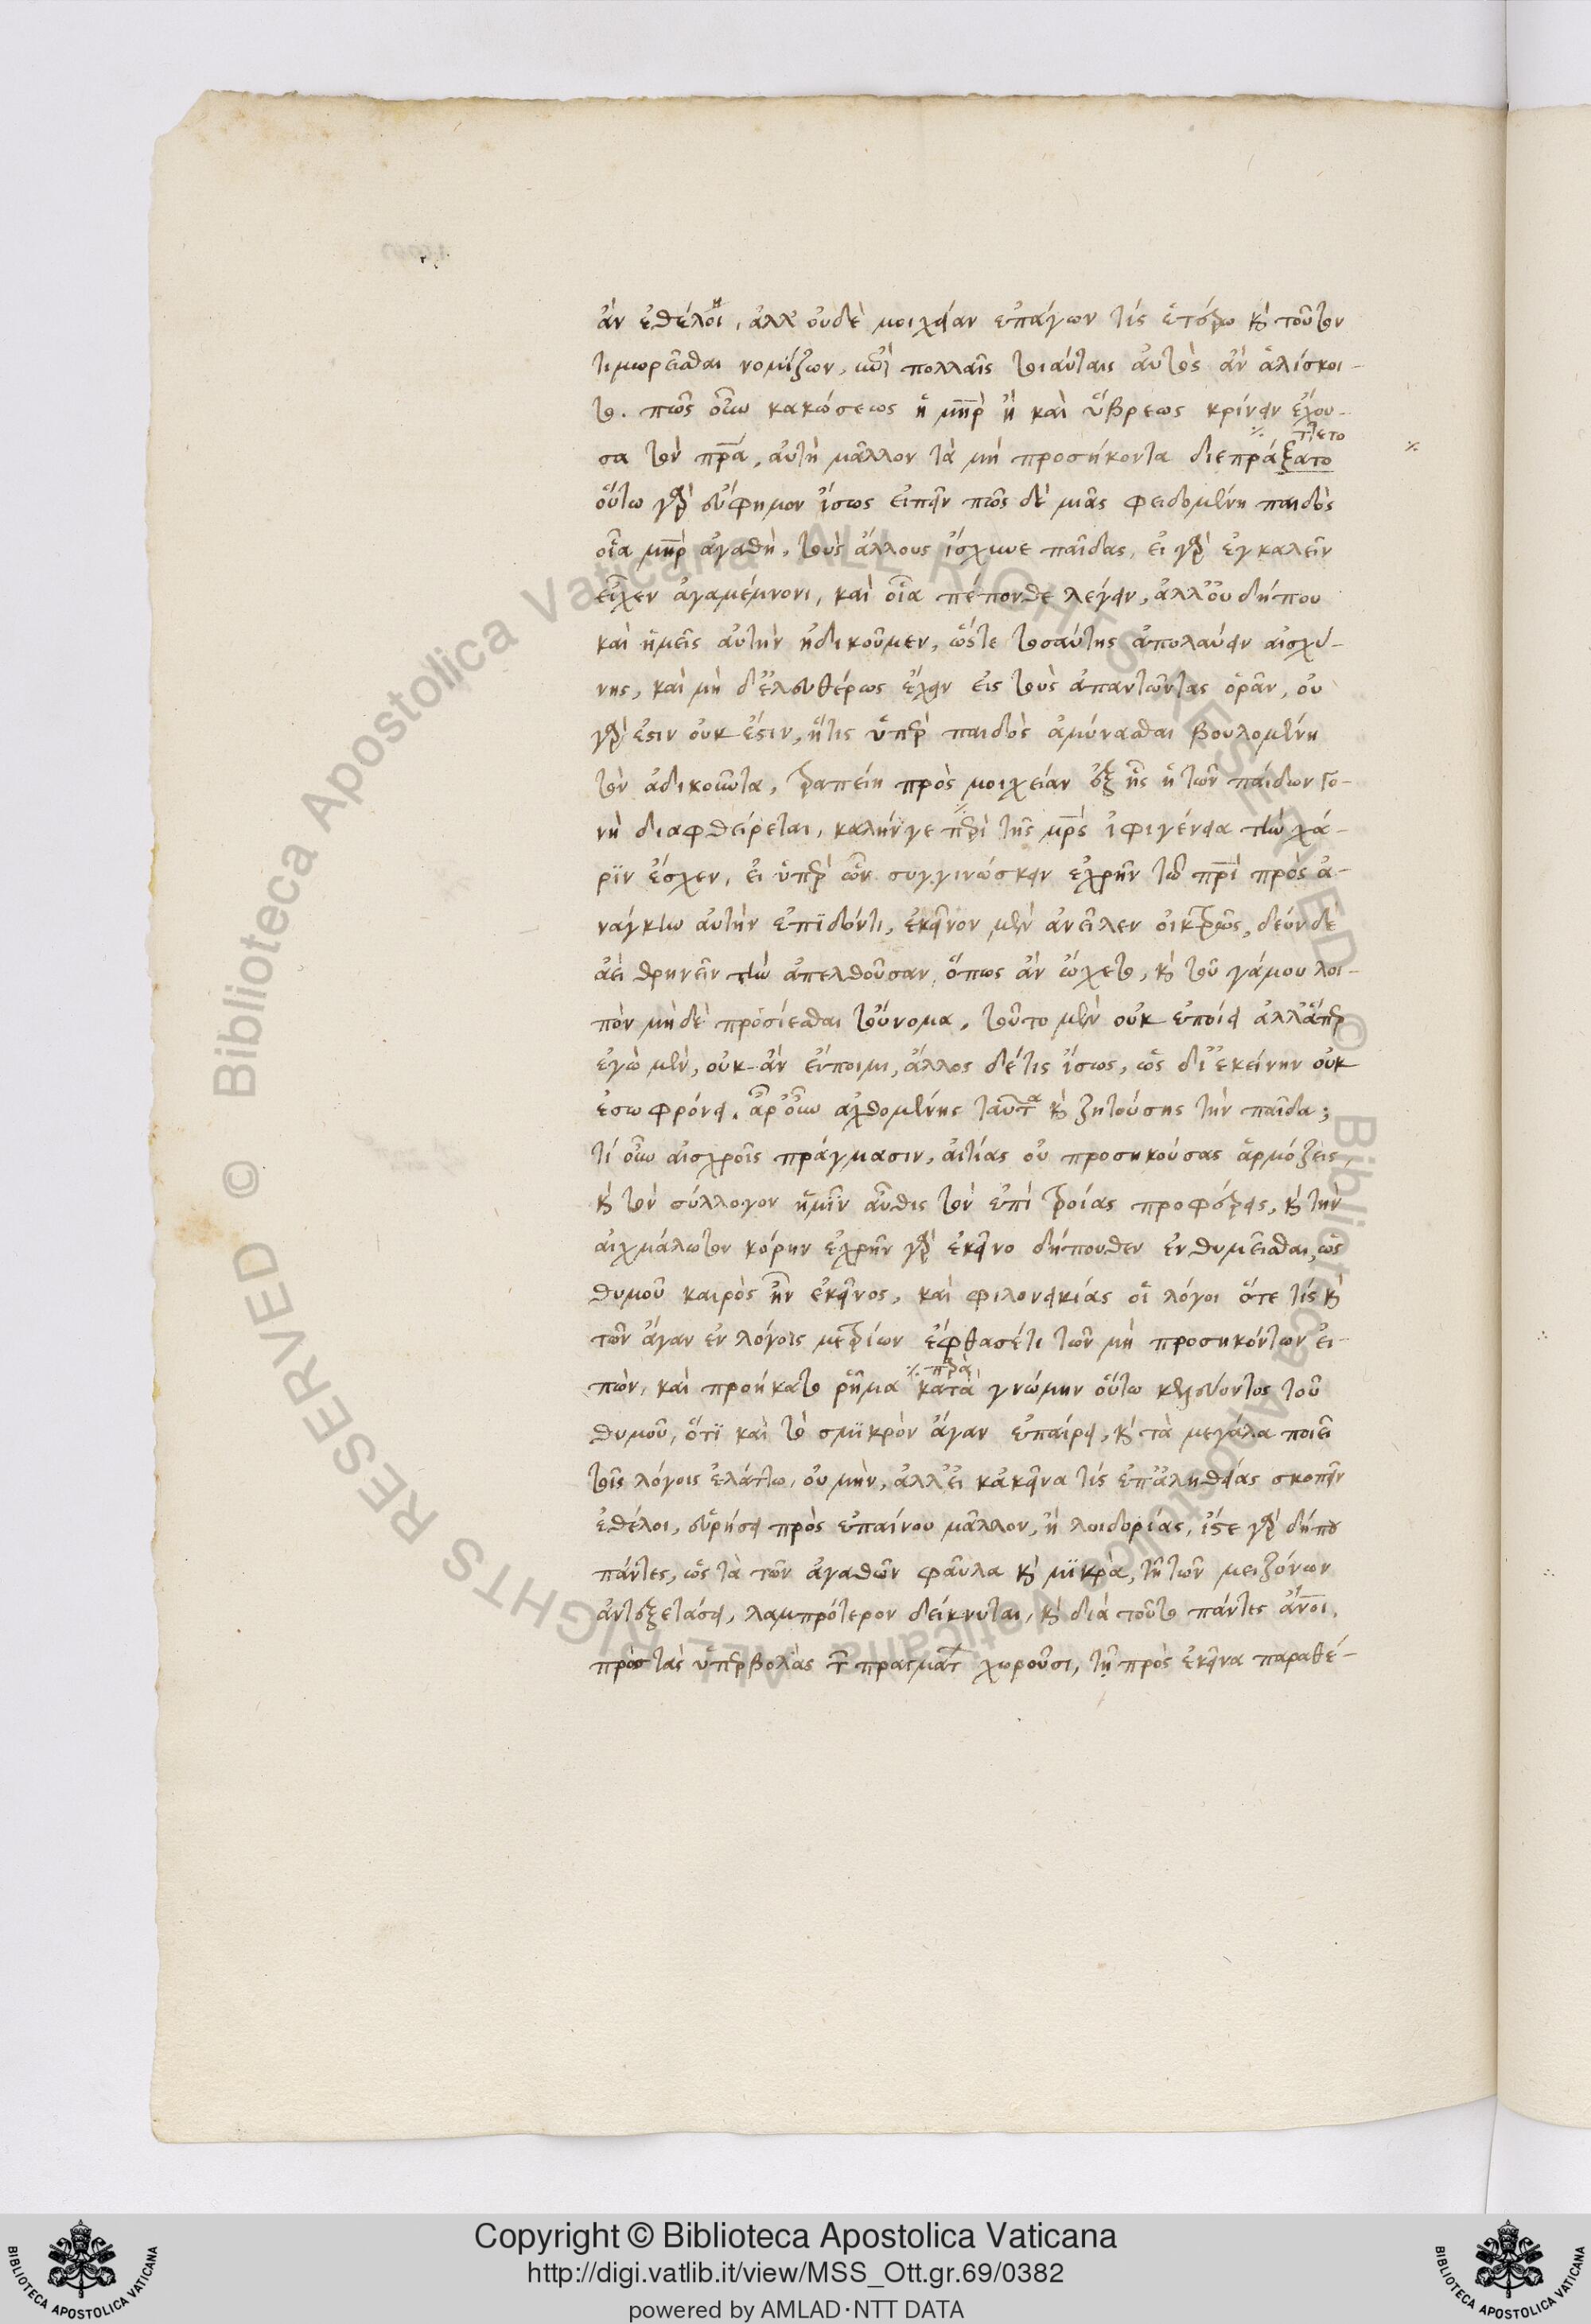 ἀν ἐθέλοι, ἀλλ' οὐδὲ μοιχείαν ἐπάγων τίς ἑτέρω κὶ τοῦτον
τιμωρεῖσθαι νομίζων, πολλαῖς τοιαύταις αὐτὸς ἂν ἁλίσκοι-
το. πῶς οὖν κακώσεως ἡ μηρ ἢ καὶ ὕβρεως κρίνειν ἔχου-
τιετο
σα τὸν πρα, αὐτὴ μᾶλλον τὰ μὴ προσήκοντα διεπράξατο
οὕτω γὰρ εὔφημον ἴσως εἰπεῖν πῶς δὲ μιᾶς φειδομένη παιδὸς
οἷα μηρ ἀγαθὴ, τοὺς ἄλλους ἴσχυνε παῖδας, εἰ γὰρ ἐγκαλεῖν
εἶχεν ἀγαμέμνονι, καὶ οἷα πέπονθε λέγειν, ἀλλ' οὐ δήπου
καὶ ἡμεῖς αὐτὴν ἠδικοῦμεν, ὥστε τοσαύτης ἀπολαύειν αἰσχύ-
νης, καὶ μὴ δ' ἐλευθέρως ἔχειν εἰς τοὺς ἀπαντῶντας ὁρᾶν, οὐ
γὰρ ἔστιν οὐκ ἔστιν, ἥτις ὑπὲρ παιδὸς ἀμύνασθαι βουλομένη
τὸν ἀδικοῦντα, τραπείη πρὸς μοιχείαν ἐξ ἧς ἡ τῶν παίδων γο-
νὴ διαφθείρεται, καλήν γε περὶ τῆς μρς ἰφιγένεια τὴν χά-
ριν ἔσχεν, εἰ ὑπὲρ ὧν συγγινώσκειν ἐχρῆν τῶ πρι πρὸς ἀ-
νάγκην αὐτὴν ἐπιδόντι, ἐκεῖνον μὲν ἀνεῖλεν οἰκτρῶς, δέον δὲ
ἀεὶ θρηνεῖν τὴν ἀπελθοῦσαν, ὅπως ἂν ᾤχετο, κὶ τοῦ γάμου λοι-
πὸν μὴδὲ προσίεσθαι τοὔνομα, τοῦτο μὲν οὐκ ἐποίει ἀλλ' ἅπερ
ἐγὼ μὲν, οὐκ ἂν εἴποιμι, ἄλλος δέ τις ἴσως, ὡς δι' ἐκείνην οὐκ
ἐσωφρόνει. ἆρ' οὖν ἀχθομένης ταῦτα κὶ ζητούσης τὴν παῖδα;
τί οὖν αἰσχροῖς πράγμασιν, αἰτίας οὐ προσηκούσας ἁρμόζεις,
κὶ τὸν σύλλογον ἡμῖν αὖθις τὸν ἐπὶ τροίας προφέρεις, κὶ τὴν
αἰχμάλωτον κόρην ἐχρῆν γὰρ ἐκεῖνο δήπουθεν ἐνθυμεῖσθαι, ὡς
θυμοῦ καιρὸς ἦν ἐκεῖνος, καὶ φιλονεικίας οἱ λόγοι ὅτε τίς κὶ
τῶν ἄγαν ἐν λόγοις μετρίων ἔφθασέ τι τῶν μὴ προσηκόντων εἰ-
παρὰ
πὼν, καὶ προήκατο ῥῆμα κατὰ γνώμην οὕτω κελεύοντος τοῦ
θυμοῦ, ὅτι καὶ τὸ σμικρὸν ἄγαν ἐπαίρει, κὶ τὰ μεγάλα ποιεῖ
τοῖς λόγοις ἐλάττω, οὐ μὴν, ἀλλ' εἰ κἀκεῖνα τίς ἐπ' ἀληθείας σκοπεῖν
ἐθέλοι, εὑρήσει πρὸς ἐπαίνου μᾶλλον, ἢ λοιδορίας, ἴστε γὰρ δήπου
πάντες, ὡς τὰ τῶν ἀγαθῶν φαῦλα κὶ μικρὰ, τῇ τῶν μειζόνων
ἀντεξετάσει, λαμπρότερον δείκνυται, κὶ διὰ τοῦτο πάντες ἄνοι,
πρὸς τὰς ὑπερβολὰς τ πραγματ χωροῦσι, τῇ πρὸς ἐκεῖνα παραθέ-
Copyright © Biblioteca Apostolica Vaticana
http://digi.vatlib.it/view/MSS_Ott.gr.69/0382
powered by AMLAD·NTT DATA
BIBLIOTECA APOSTOLICA VATICANA
BIBLIOTECA APOSTOLICA VATICANA
© Biblioteca Apostolica Vaticana ALL RIGHTS RESERVED
© Biblioteca Apostolica Vaticana ALL RIGHTS RESERVED